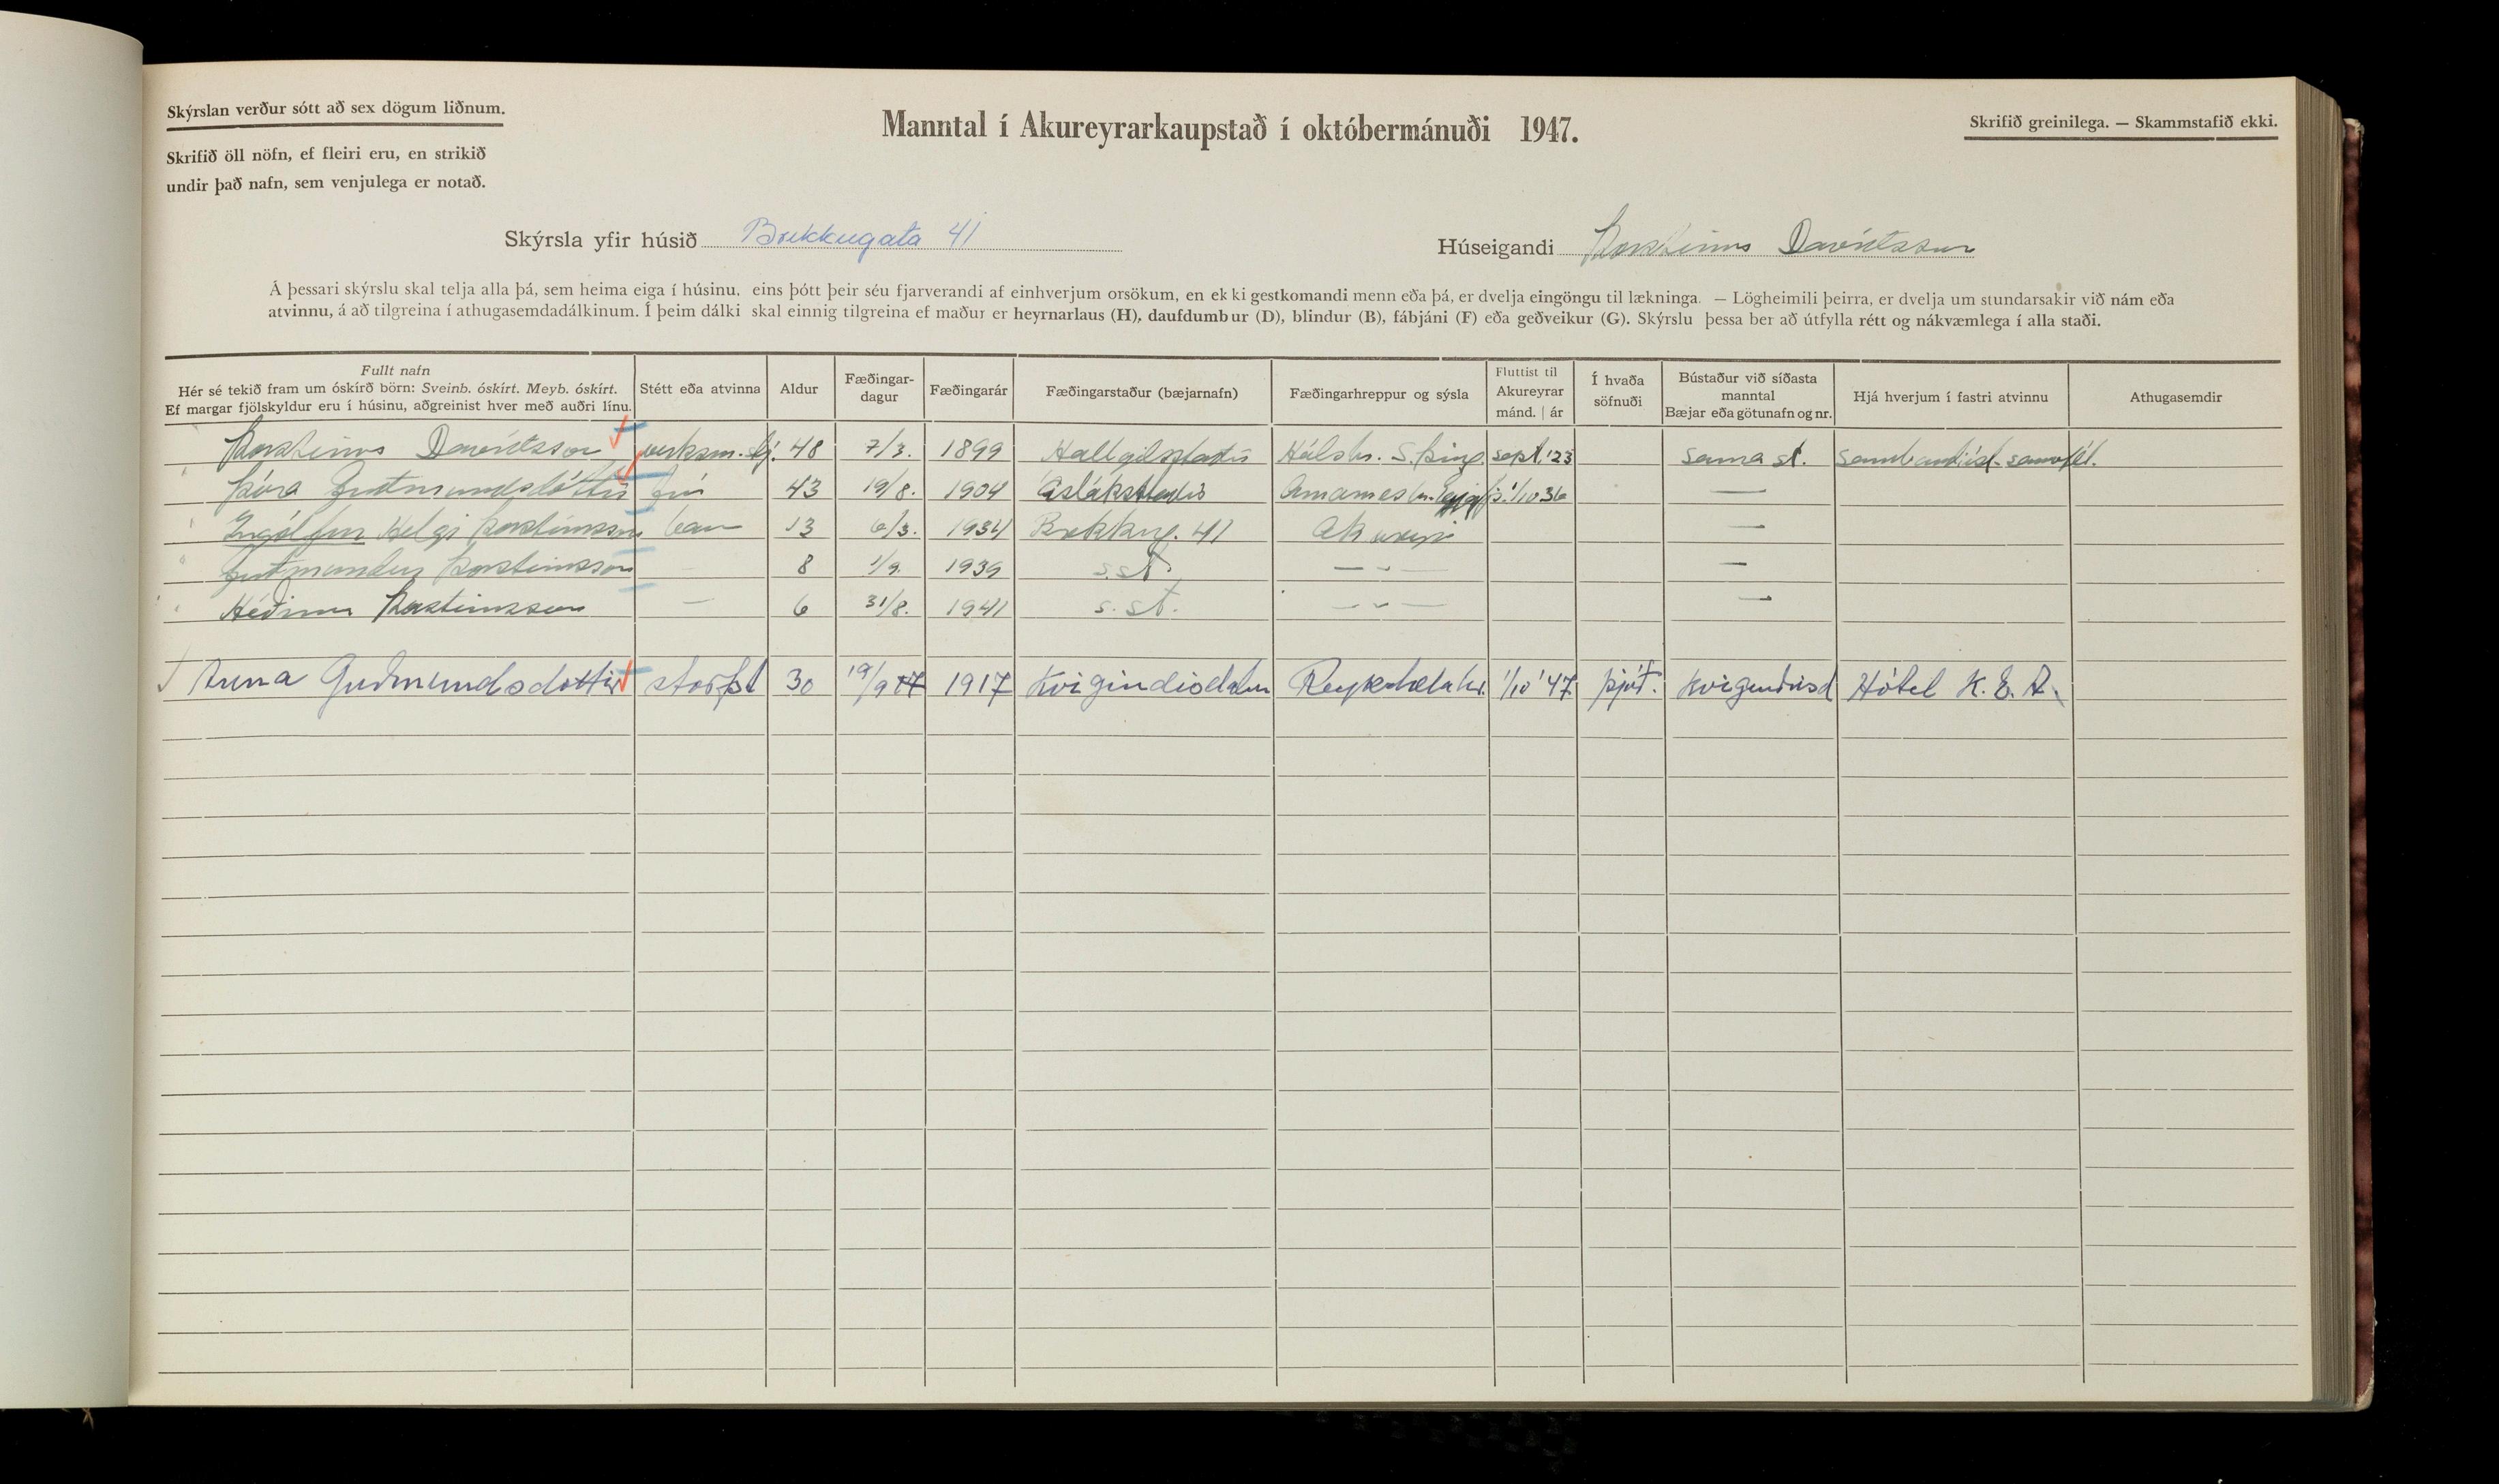 Skýrslan verður sótt að sex dögum liðnum.
Skrifið öll nöfn, ef fleiri eru, en strikið
undir það nafn, sem venjulega er notað.
Manntal í Akureyrarkaupstað í októbermánuði 1947.
Skrifið greinilega. — Skammstafið ekki.
Skýrsla yfir húsið Brekkugata 41
Húseigandi Þorsteinn Davíðsson
Á þessari skýrslu skal telja alla þá, sem heima eiga í húsinu, eins þótt þeir séu fjarverandi af einhverjum orsökum, en ekki gestkomandi menn eða þá, er dvelja eingöngu til lækninga. — Lögheimili þeirra, er dvelja um stundarsakir við nám eða
atvinnu, á að tilgreina í athugasemdadálkinum. Í þeim dálki skal einnig tilgreina ef maður er heyrnarlaus (H), daufdumbur (D), blindur (B), fábjáni (F) eða geðveikur (G). Skýrslu þessa ber að útfylla rétt og nákvæmlega í alla staði.
Fullt nafn
Hér sé tekið fram um óskírð börn: Sveinb. óskírt. Meyb. óskírt.
Ef margar fjölskyldur eru í húsinu, aðgreinist hver með auðri línu.
Stétt eða atvinna
Aldur
Fæðingar-
dagur
Fæðingarár
Fæðingarstaður (bæjarnafn)
Fæðingarhreppur og sýsla
Fluttist til
Akureyrar
mánd. | ár
Í hvaða
söfnuði
Bústaður við síðasta
manntal
Bæjar eða götunafn og nr.
Hjá hverjum í fastri atvinnu
Athugasemdir
Þorsteinn Davíðsson verksm.stj. 48 7/3. 1899 Hallgilsstaðir Hálshr. S.Þing. sept. '23 sama st. Samb. ísl. samvfél.
Þóra Guðmundsdóttir frú 43 19/8. 1904 Ásláksstaðir Arnarneshr. Eyjafj. 1/10 36 —
Ingólfur Helgi Þorsteinsson barn 13 6/3. 1934 Brekkug. 41 Akureyri —
Guðmundur Þorsteinsson — 8 1/9. 1939 s.st. — „ — —
Héðinn Þorsteinsson — 6 31/8. 1941 s.st. — „ — —
Anna Guðmundsdottir 30 19/9 17 1917 Kvigindisdalur Reykdælahr. 1/10 '47 þjóð. Kvigindisd Hótel K.E.A.